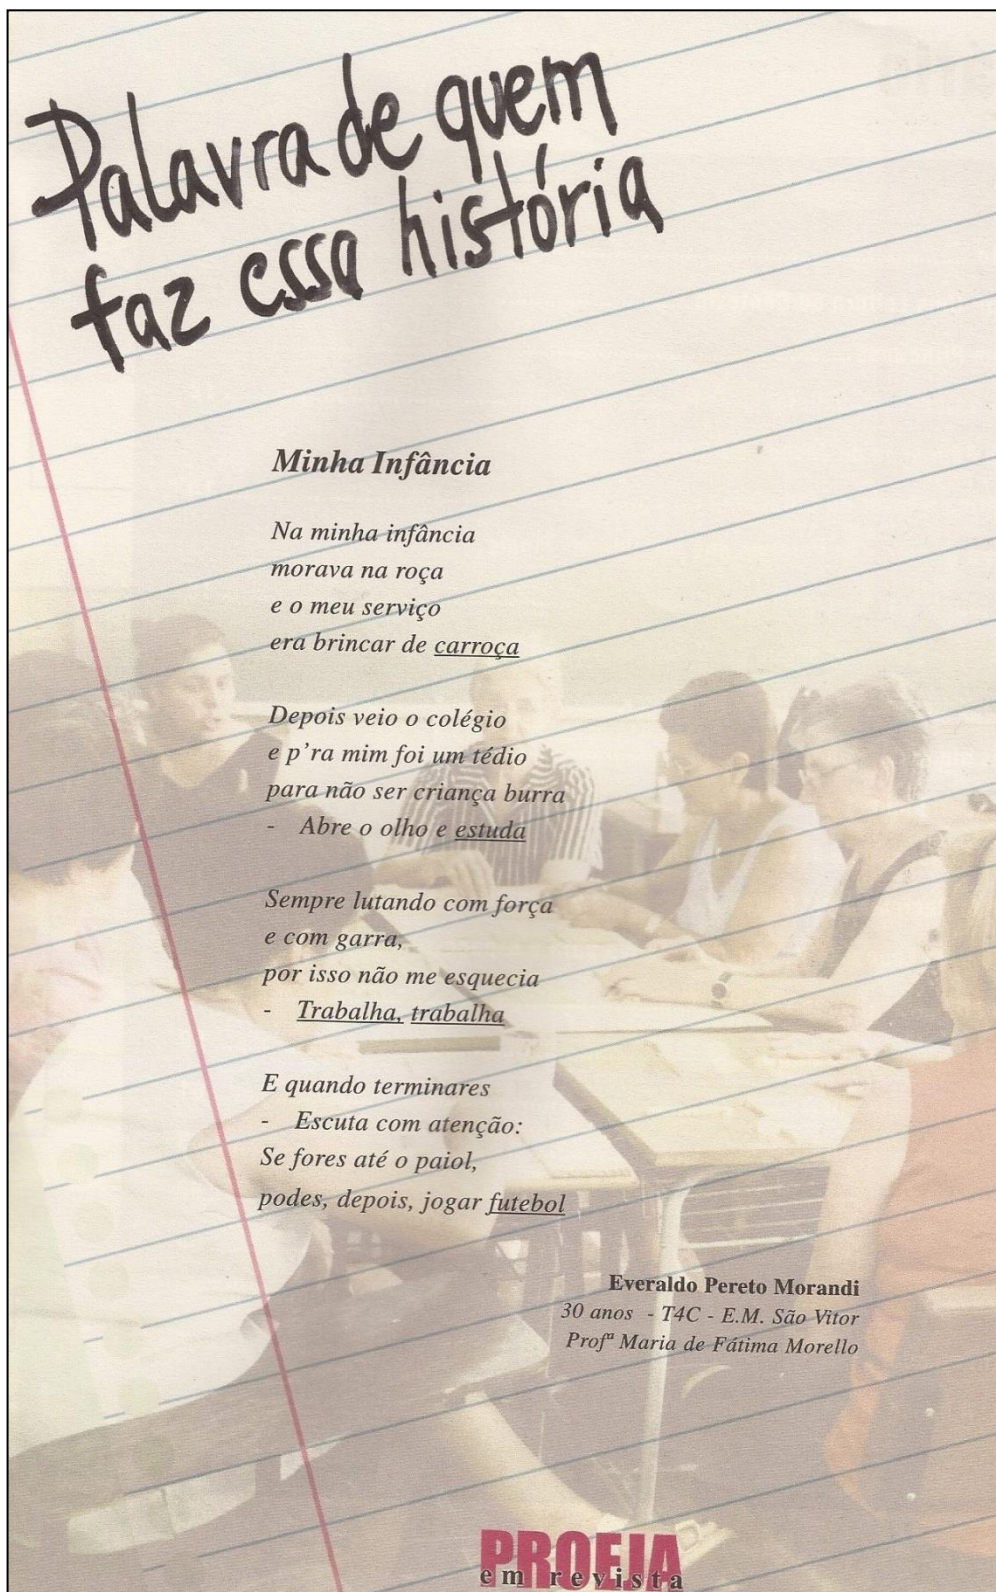 Palavra de quem
faz essa história
Minha Infância
Na minha infância
morava na roça
e o meu serviço
era brincar de carroça
Depois veio o colégio
e p'ra mim foi um tédio
para não ser criança burra
- Abre o olho e estuda
Sempre lutando com força
e com garra,
por isso não me esquecia
- Trabalha, trabalha
E quando terminares
- Escuta com atenção:
Se fores até o paiol,
podes, depois, jogar futebol
Everaldo Pereto Morandi
30 anos - T4C - E.M. São Vitor
Profª Maria de Fátima Morello
PROEJA
em revista